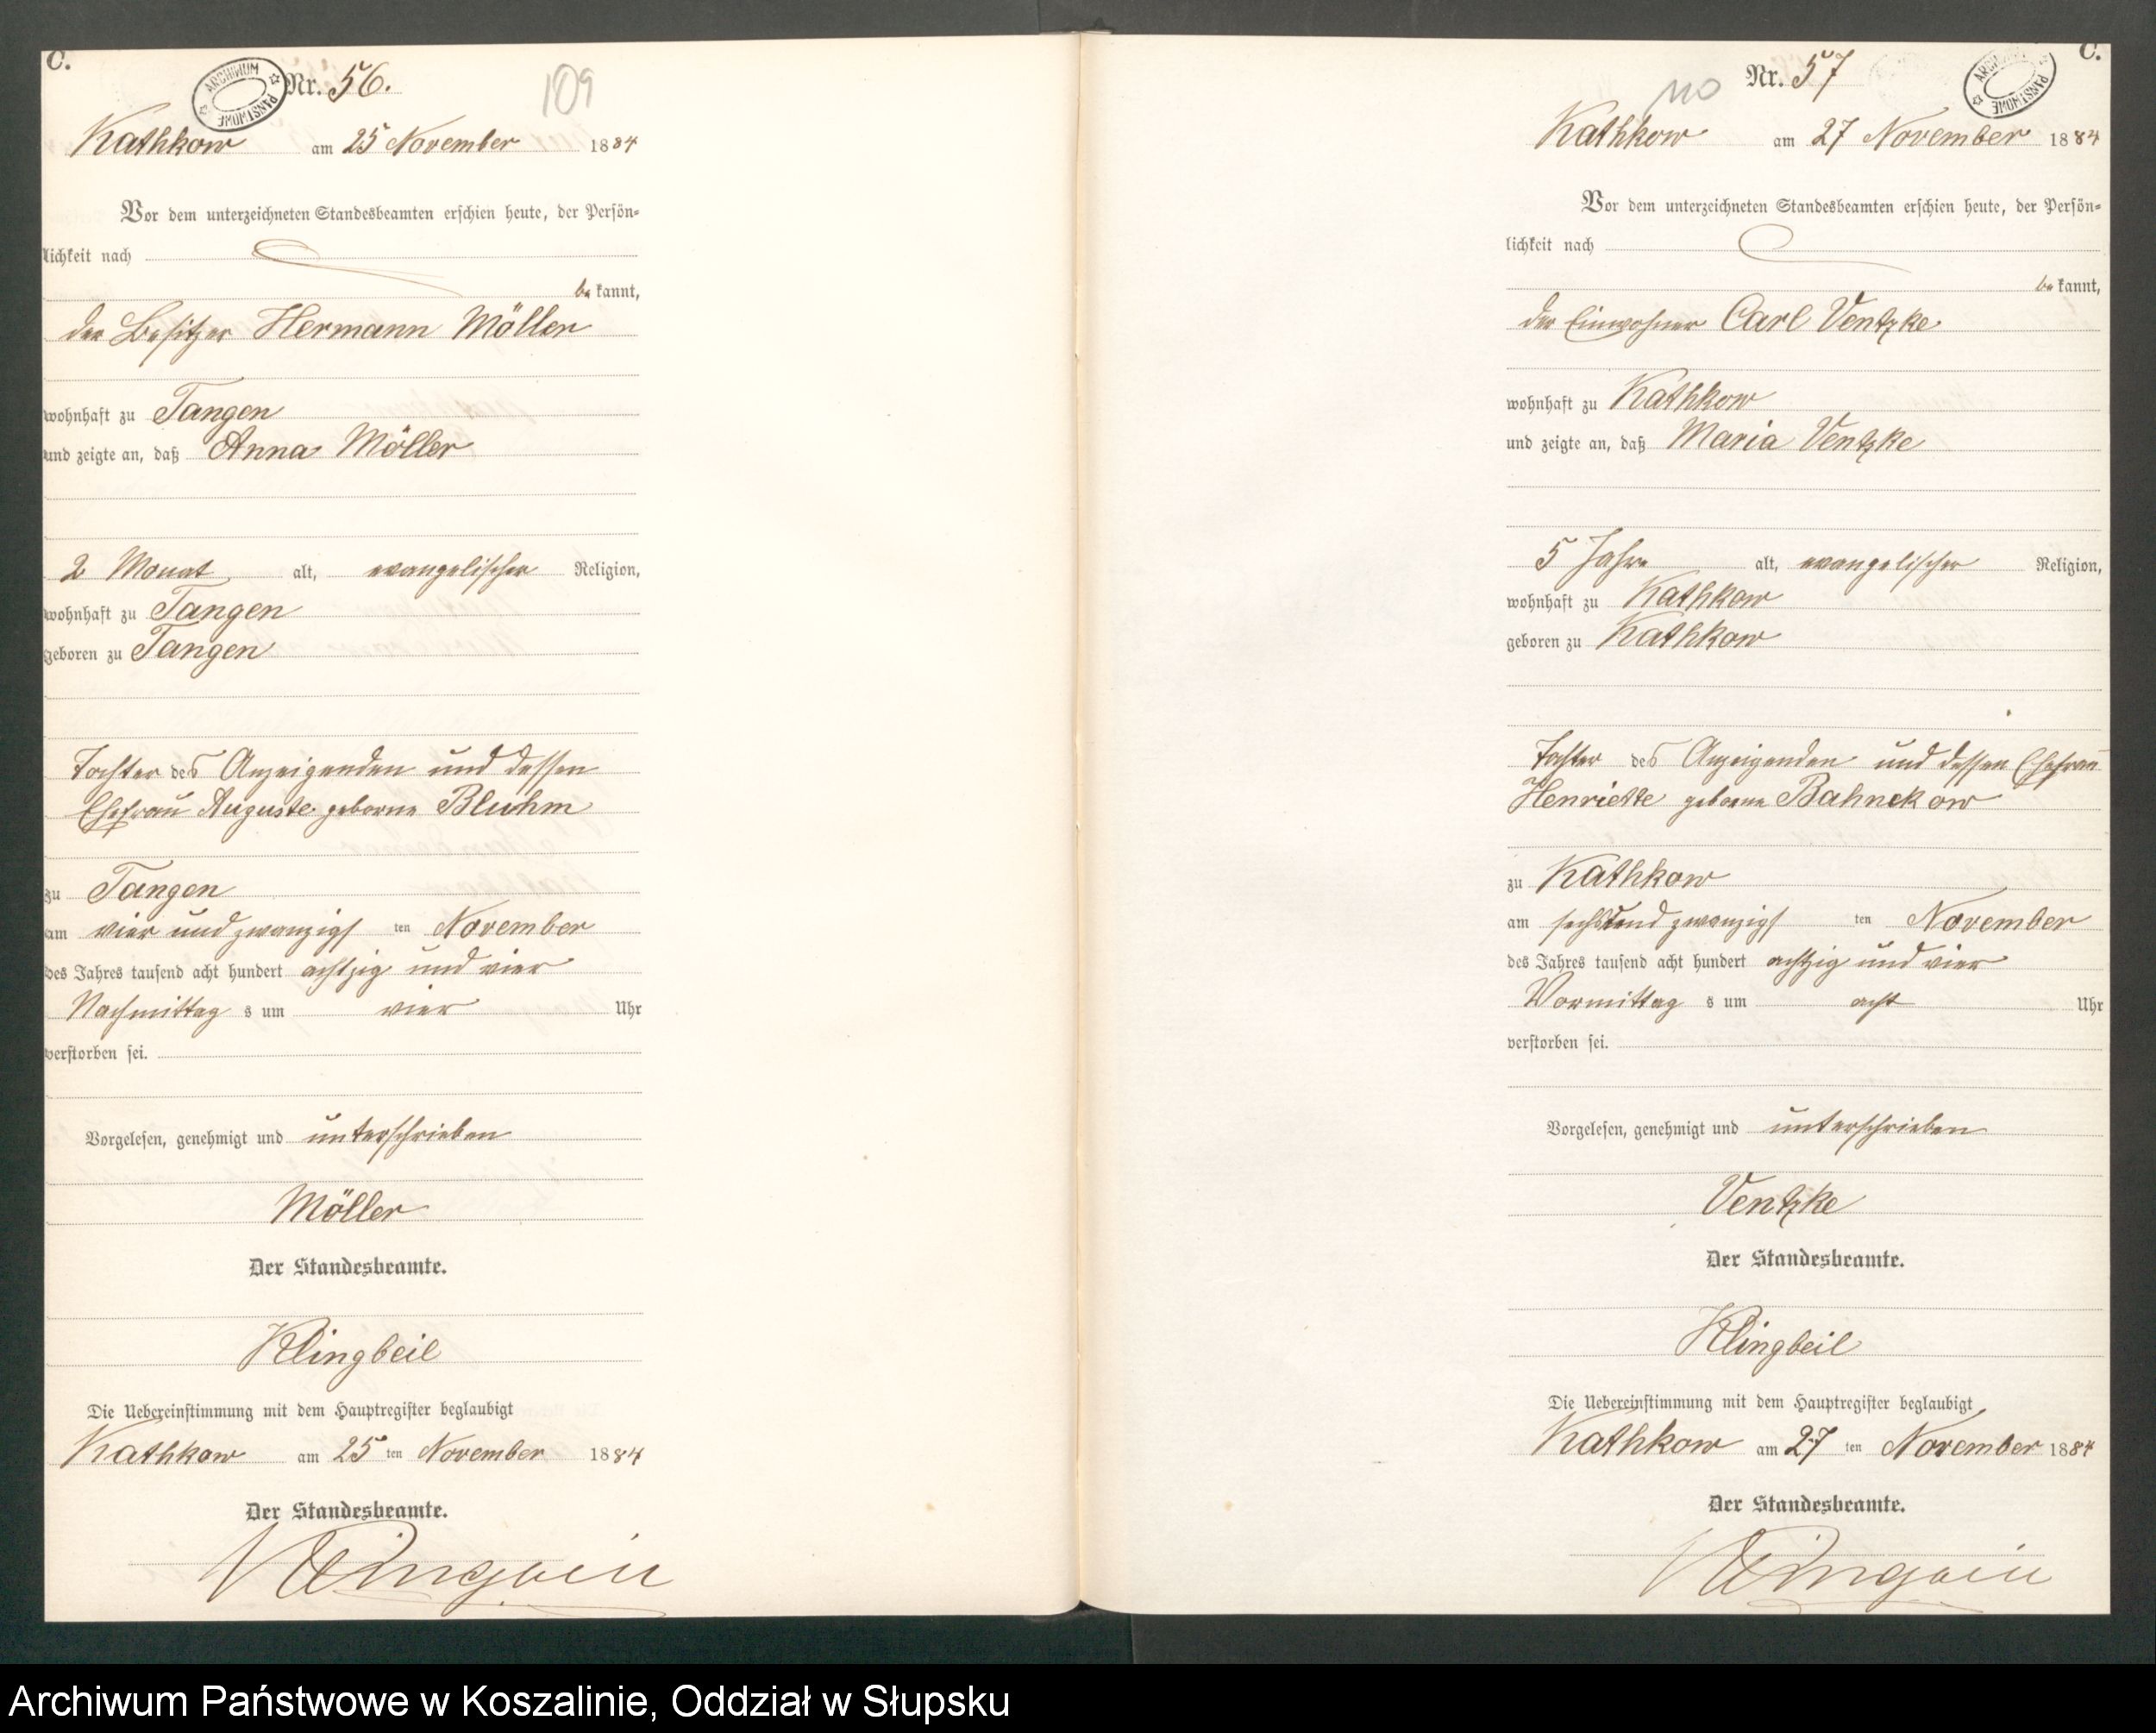 C.
ARCHIWUM PAŃSTWOWE
Nr. 56.
109
Kathkow am 25 November 1884
Vor dem unterzeichneten Standesbeamten erschien heute, der Persön-
lichkeit nach
be kannt,
der Besitzer Hermann Möller
wohnhaft zu Tangen
und zeigte an, daß Anna Möller
2 Monat alt, evangelischer Religion,
wohnhaft zu Tangen
geboren zu Tangen
Tochter des Anzeigenden und dessen
Ehefrau Auguste geborne Bluhm
zu Tangen
am vier und zwanzigs ten November
des Jahres tausend acht hundert achtzig und vier
Nachmittag s um vier Uhr
verstorben sei.
Vorgelesen, genehmigt und unterschrieben
Möller
Der Standesbeamte.
Klingbeil
Die Uebereinstimmung mit dem Hauptregister beglaubigt
Kathkow am 25 ten November 1884
Der Standesbeamte.
Klingbeil
C.
ARCHIWUM PAŃSTWOWE
110
Nr. 57
Kathkow am 27 November 1884
Vor dem unterzeichneten Standesbeamten erschien heute, der Persön-
lichkeit nach
be kannt,
der Einwohner Carl Ventzke
wohnhaft zu Kathkow
und zeigte an, daß Maria Ventzke
5 Jahre alt, evangelischer Religion,
wohnhaft zu Kathkow
geboren zu Kathkow
Tochter des Anzeigenden und dessen Ehefrau
Henriette geborne Bahnekow
zu Kathkow
am sechsund zwanzigs ten November
des Jahres tausend acht hundert achtzig und vier
Vormittag s um acht Uhr
verstorben sei.
Vorgelesen, genehmigt und unterschrieben
Ventzke
Der Standesbeamte.
Klingbeil
Die Uebereinstimmung mit dem Hauptregister beglaubigt
Kathkow am 27 ten November 1884
Der Standesbeamte.
Klingbeil
Archiwum Państwowe w Koszalinie, Oddział w Słupsku